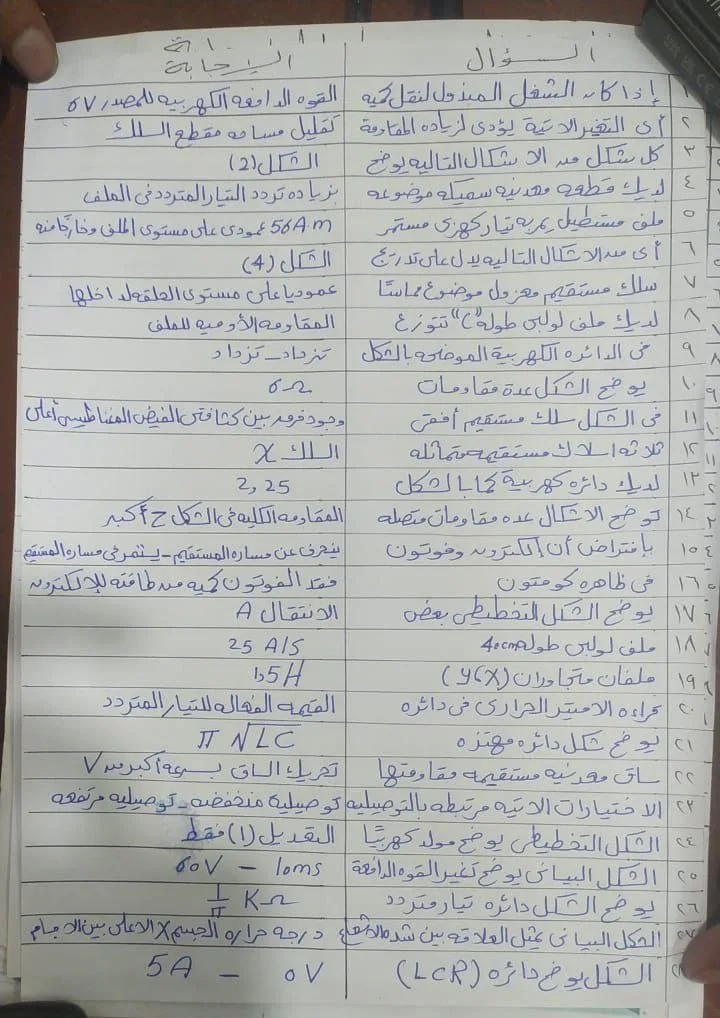 السؤال الإجابة
١ إذا كان الشغل المبذول لنقل كمية القوه الدافعه الكهربيه للمصدر 6V
٢ أى التغير الاتية يؤدى لزياده المقاومة تقليل مساحه مقطع السلك
٣ كل شكل من الاشكال التاليه يوضح الشكل (2)
٤ لديك قطعه معدنيه سميكه موضوعه بزياده تردد التيار المتردد فى الملف
٥ ملف مستطيل يمر به تيار كهربى مستمر 56A.m عمودى على مستوى الملف وخارجًا منه
٦ أى من الاشكال التاليه يدل على تدريج الشكل (4)
٧ سلك مستقيم معزول موضوع مماسًا عموديا على مستوى الحلقه لداخلها
٨ لديك ملف لولبى طوله "L" تتوزع المقاومه الأوميه للملف
٩ فى الدائره الكهربية الموضحه بالشكل تزداد - تزداد
١٠ يوضح الشكل عدة مقاومات 6Ω
١١ فى الشكل سلك مستقيم أفقى وجود فرق بين كثافتى الفيض المغناطيسى أعلى
١٢ ثلاثه اسلاك مستقيمه متماثله السلك X
١٣ لديك دائره كهربية كما بالشكل 2,25
١٤ توضح الاشكال عده مقاومات متصله المقاومه الكليه فى الشكل ج أكبر
١٥ بافتراض أن إلكترون وفوتون ينحرف عن مساره المستقيم - يستمر فى مساره المستقيم
١٦ فى ظاهره كومتون فقد الفوتون كميه من طاقته للإلكترون
١٧ يوضح الشكل التخطيطى بعض الانتقال A
١٨ ملف لولبى طوله 40cm 25 A/S
١٩ ملفان متجاوران (X، Y) 1,5H
٢٠ قراءه الاميتر الحرارى فى دائره القيمه الفعاله للتيار المتردد
٢١ يوضح شكل دائره مهتزه π √LC
٢٢ ساق معدنيه مستقيمه مقاومتها تحريك الساق بسرعه أكبر من V
٢٣ الاختيارات الاتيه مرتبطه بالتوصيليه توصيلية منخفضه - توصيليه مرتفعه
٢٤ الشكل التخطيطى يوضح مولد كهربيًا التعديل (1) فقط
٢٥ الشكل البيانى يوضح تغير القوه الدافعة 60V - 10ms
٢٦ يوضح الشكل دائره تيار متردد 1/π KΩ
٢٧ الشكل البيانى يمثل العلاقه بين شده الاشعاع درجه حراره الجسم X الاعلى بين الاجسام
الشكل يوضح دائره (LCR) 5A - 0V